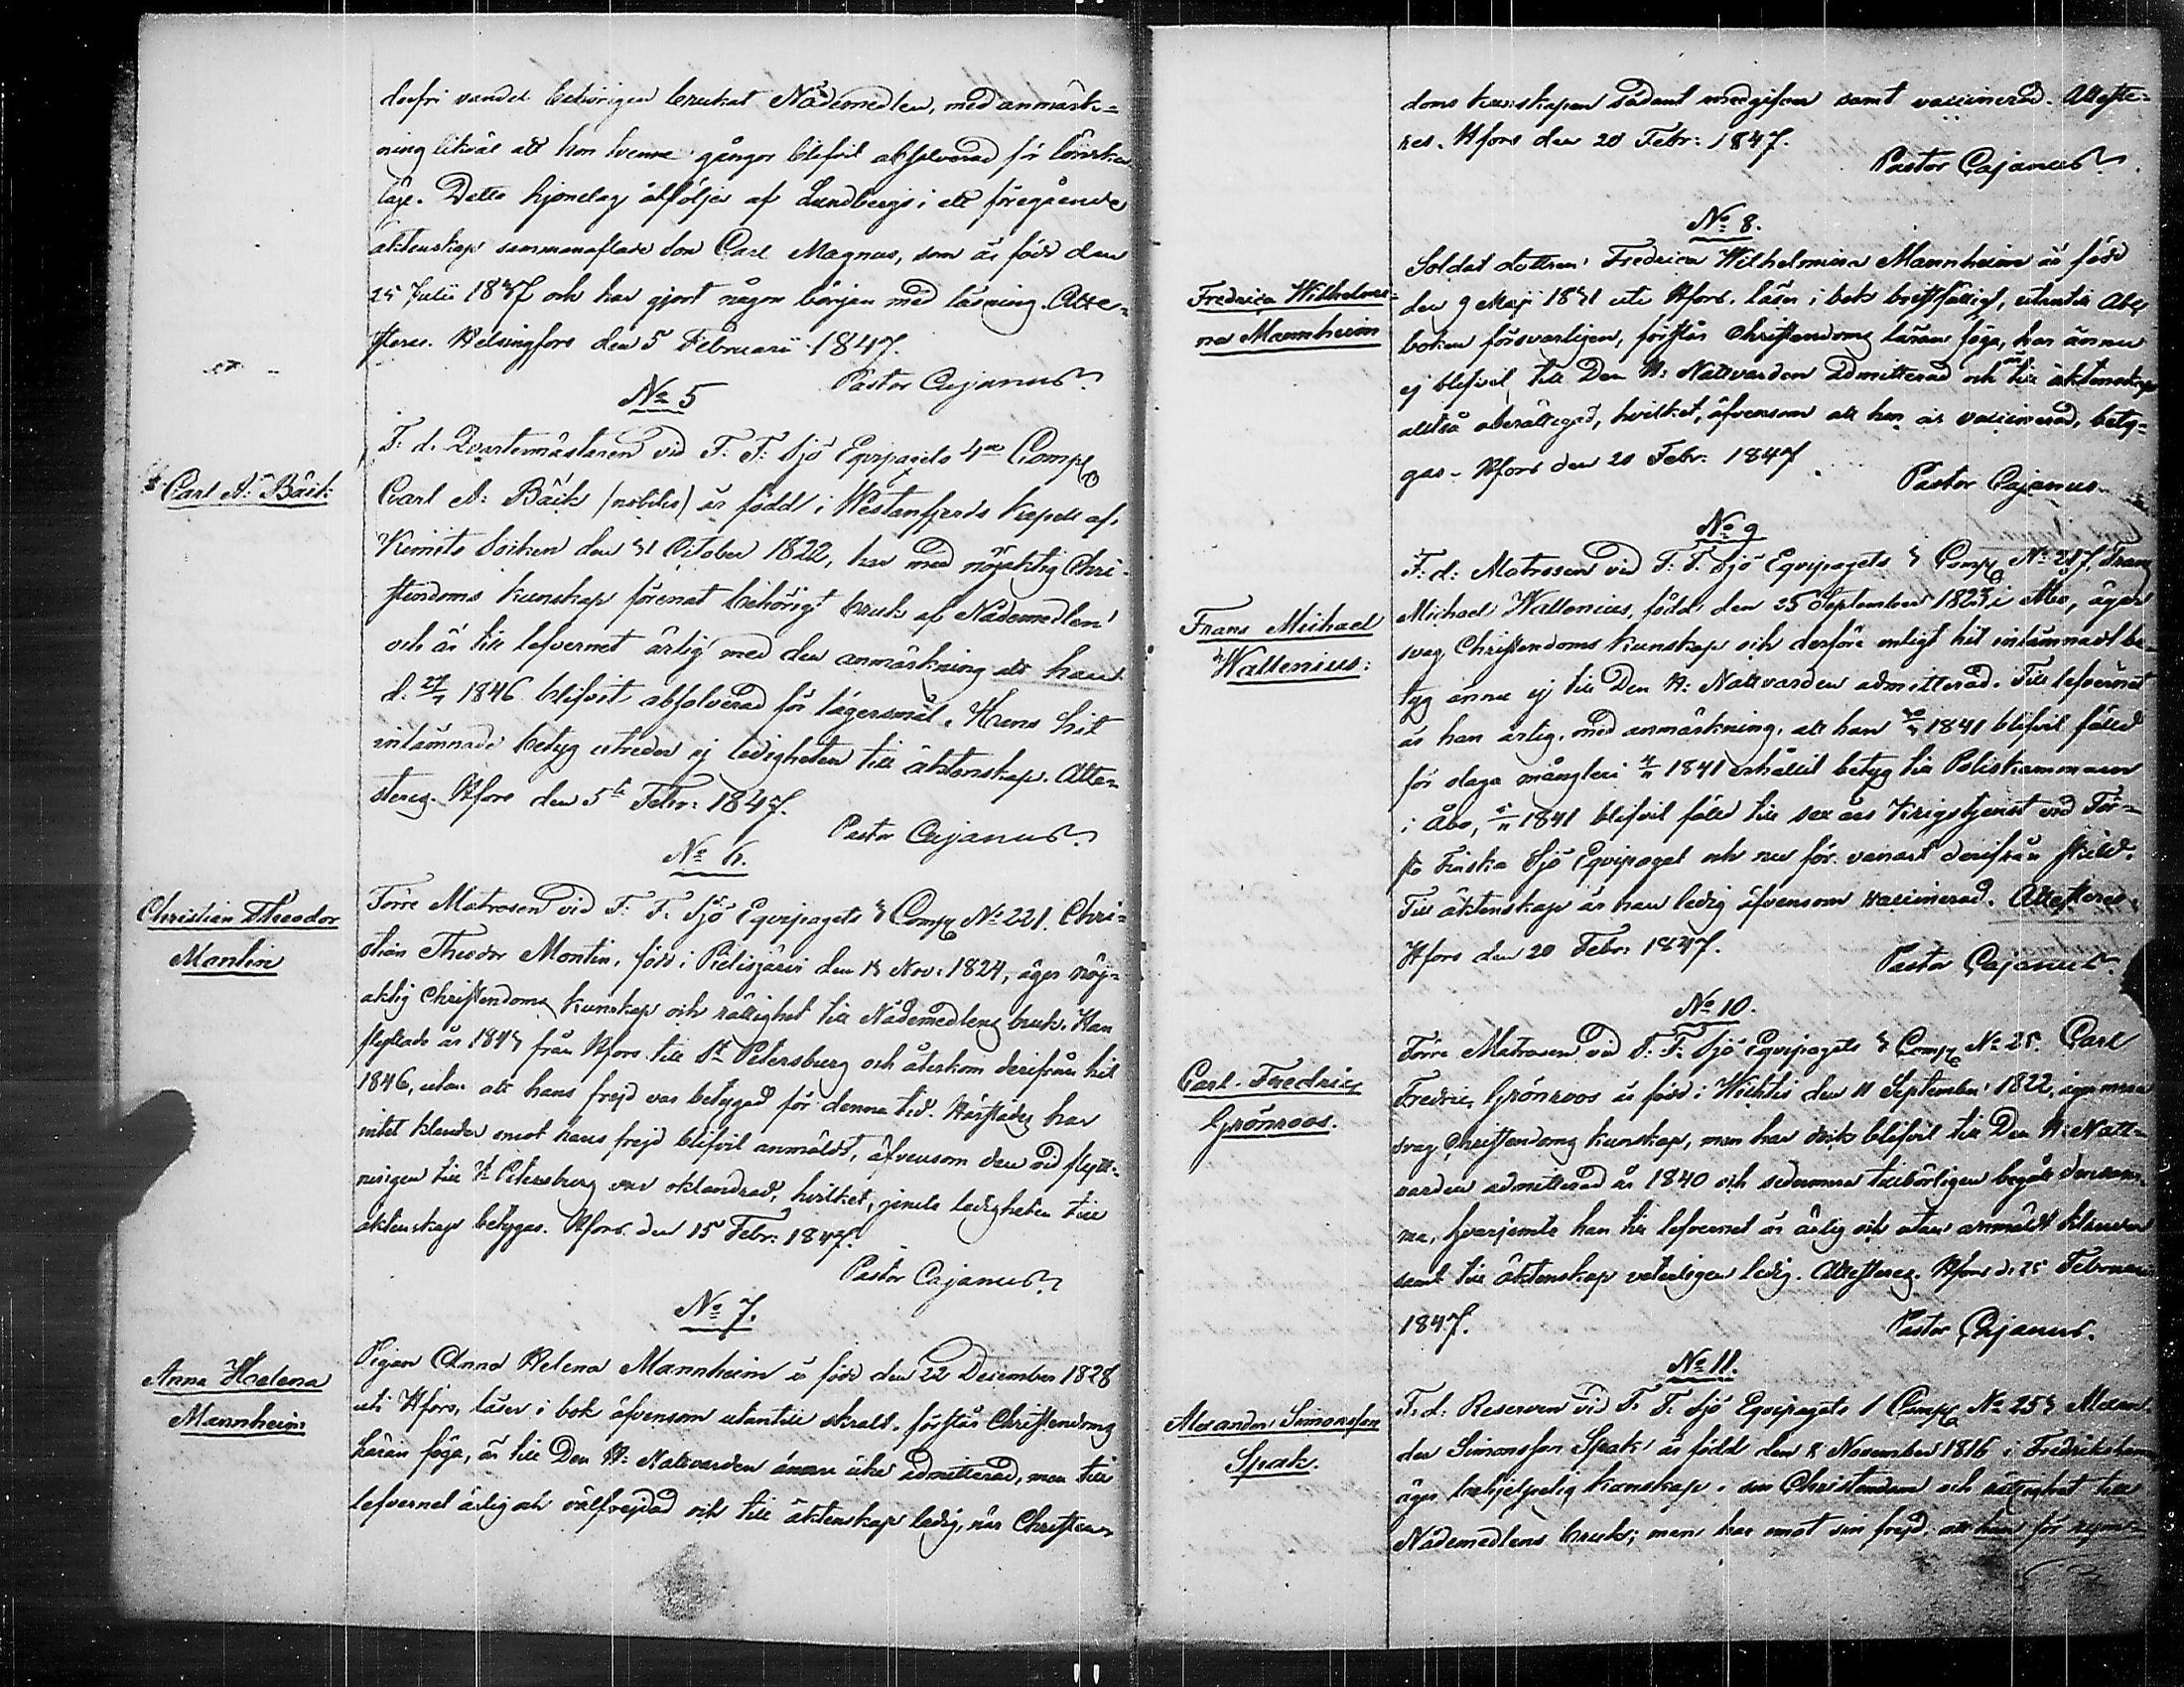 defri vandel behörigen brukat Nådemedlen, med anmärk=
ning likväl att hon tvenne gånger blifvit absolverad för lönska
läge. Detta hjonelag åtföljes af Lundbergs i ett föregående
äktenskap sammanaflade son Carl Magnus, som är född den
25 Julii 1837 och har gjort någon början med läsning. Atte=
steres. Helsingfors den 5 Februarii 1847.
Pastor Cajanus
No 5
Carl A: Bäck
F: d. Qvartermästaren vid F: F: Sjö Eqvipagets 4de Comp
Carl A: Bäck (nobilis) är född i Westanfjerds Kapell af
Kimito Socken den 31 October 1822, har med nöjaktig Chri=
stendoms kunskap förenat behörigt bruk af Nådemedlen
och är till lefvernet ärlig med den anmärkning att han
d. 1846 blifvit absolverad för lägersmål. Hans hit
inlämnade betyg utreder ej ledigheten till äktenskap. Atte=
steres. Hfors den 5te Febr: 1847.
Pastor Cajanus
No 6.
Christian Theodor
Montin
Förre Matrosen vid F: F. Sjö Eqvipagets 3 Comp No 221. Chri=
stian Theodor Montin, född i Pielisjärvi den 13 Nov: 1824, äger nöj=
aktig Christendoms kunskap och rättighet till Nådemedlens bruk. Han
flyttade år 1843 från Hfors till St Petersburg och återkom derifrån hit
1846, utan att hans frejd var betygad för denna tid. Härstädes har
intet klander emot hans frejd blifvit anmäldt, äfvensom den vid flytt=
ningen till St Petersburg var oklandrad, hvilket, jemte ledigheten till
äktenskap betygas. Hfors den 15 Febr: 1847.
Pastor Cajanus
No 7.
Anna Helena
Mannheim
Pigan Anna Helena Mannheim är född den 22 December 1828
uti Hfors, läser i bok äfvensom utantill skralt, förstår Christendoms
läran föga, är till Den H: Nattvarden ännu icke admitterad, men till
lefvernet ärlig och välfrejdad och till äktenskap ledig, när Christen=
doms kunskapen sådant medgifver samt vaccinerad. Atteste=
res. Hfors den 20 Febr: 1847.
Pastor Cajanus
No 8.
Fredrica Wilhelmi=
na Mannheim
Soldat dottren Fredrica Wilhelmina Mannheim är född
den 9 Maji 1831 uti Hfors. läser i bok bristfälligt, utantill Abc
boken försvarligen, förstår Christendoms läran föga, har ännu
ej blifvit till Den H: Nattvarden admitterad och är till äktenskap
alltså oberättigad, hvilket, äfvensom att hon är vaccinerad, bety=
gas. Hfors den 20 Febr: 1847
Pastor Cajanus
No 9
Frans Michael
Wallenius:
F: d: Matrosen vid F: F. Sjö Eqvipagets 3 Comp No 287. Frans
Michael Wallenius, född den 25 September 1823 i Åbo, äger
svag Christendoms kunskap och derföre enligt hit inlämnadt be=
tyg ännu ej till Den H: Nattvarden admitterad. Till lefvernet
är han ärlig, med anmärkning, att han 1841 blifvit fälld
för olaga mångleri 1841 erhållit betyg till Poliskammaren
i Åbo, 1841 blifvit fälld till sex års Krigstjenst vid För=
sta Finska Sjö Eqvipaget och nu för vanart derifrån skild.
Till äktenskap är han ledig äfvensom vaccinerad. Attesteres.
Hfors den 20 Febr: 1847.
Pastor Cajanus
No 10.
Carl Fredric
Grönroos.
Förre Matrosen vid F: F: Sjö Eqvipagets 3 Comp No 25. Carl
Fredric Grönroos är född i Wichtis den 11 September 1822, äger
svag Christendoms kunskap, men har dock blifvit till Den H: Natt=
varden admitterad år 1840 och sedermera tillbörligen begått
na, hvarjemte han till lefvernet är ärlig och utan anmäldt klander
samt till äktenskap veterligen ledig. Attesteres. Hfors d: 25 Februarii
1847.
Pastor Cajanus.
No 11.
Alexander Simonsson
Spak.
F. d: Reserven vid F: F: Sjö Eqvipagets 1 Comp No 253 Alexan=
der Simonsson Spak är född den 8 November 1816 i Fredrikshamn
äger behjelpelig kunskap i sin Christendom och rättighet till
Nådemedlens bruk; men har emot sin frejd, att han för